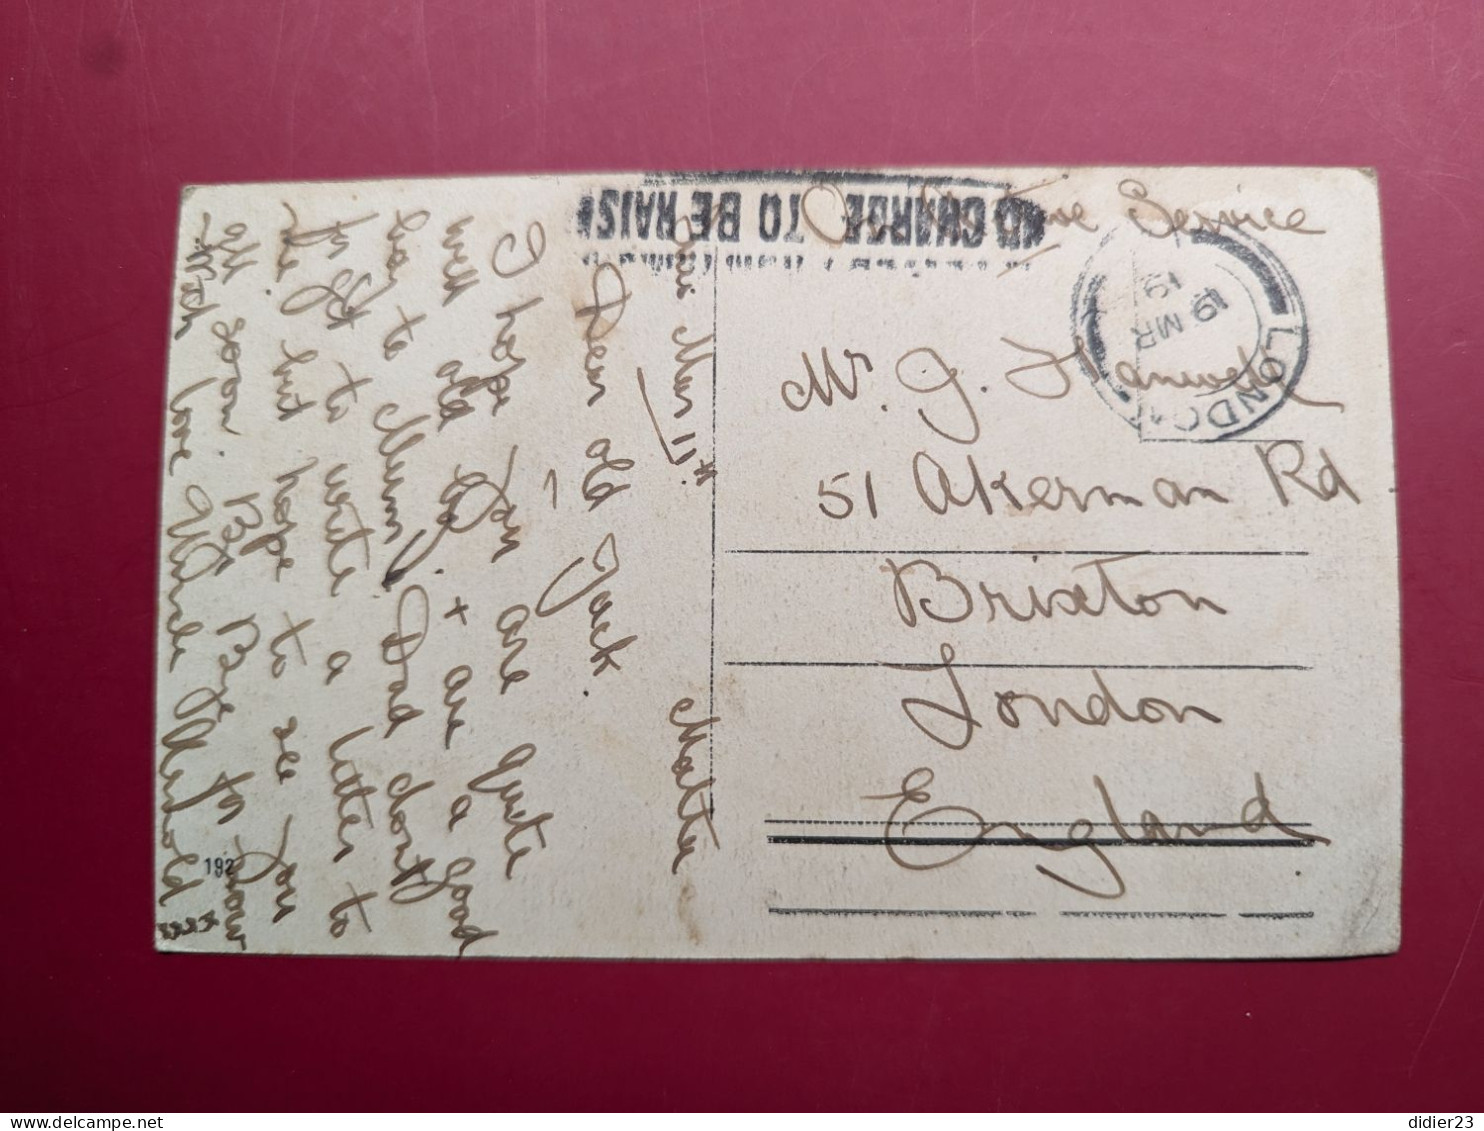 On Active Service
NO CHARGE TO BE RAIS
LONDON
19 MR
19
Mr. J. Hanwell
51 Akerman Rd
Brixton
London
England
Mar 11th. Malta
Dear old Jack.
I hope you are quite
well old boy + are a good
boy to Mummie Dad dont
forget to write a letter to
me but hope to see you
all soon. Bye Bye for now
With love Uncle Harold
xxxx
192
didier23